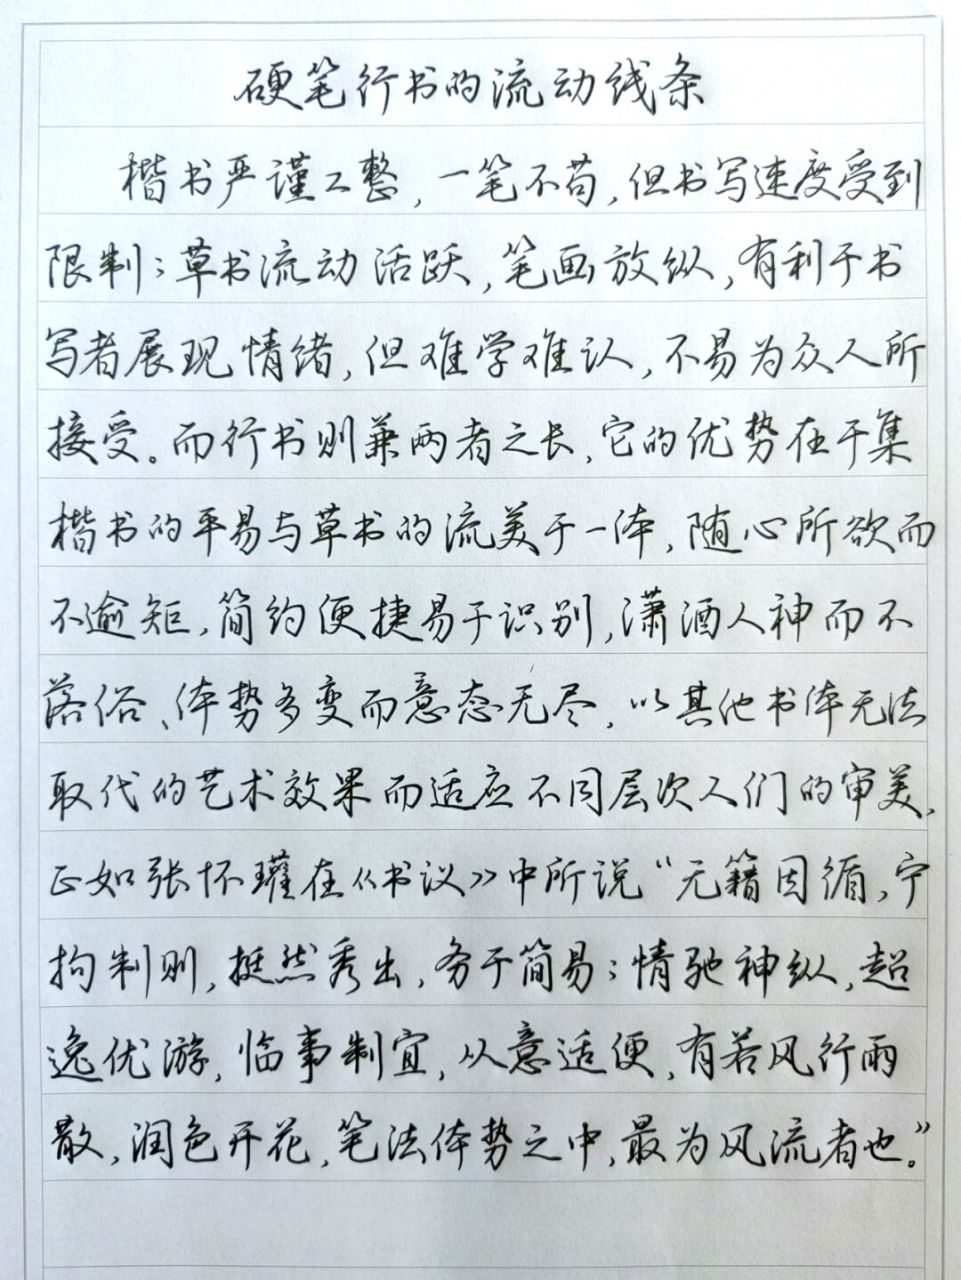 硬笔行书的流动线条
楷书严谨工整,一笔不苟,但书写速度受到
限制;草书流动活跃,笔画放纵,有利于书
写者展现情绪,但难学难认,不易为众人所
接受。而行书则兼两者之长,它的优势在于集
楷书的平易与草书的流美于一体,随心所欲而
不逾矩,简约便捷易于识别,潇洒人神而不
落俗、体势多变而意态无尽,以其他书体无法
取代的艺术效果而适应不同层次人们的审美,
正如张怀瓘在《书议》中所说“无籍因循,宁
拘制则,挺然秀出,务于简易;情驰神纵,超
逸优游,临事制宜,从意适便,有若风行雨
散,润色开花,笔法体势之中,最为风流者也。”